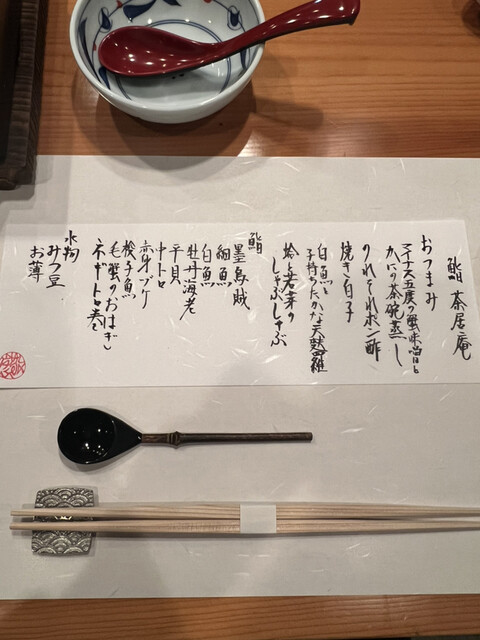 鮨 茶居庵
おつまみ
マイナス五度の蟹味噌はも
かにの茶碗蒸し
のれそれポン酢
焼き白子
白魚と
子持ちたかな天麩羅
蛤と若芽の
しゃぶしゃぶ
鮨
墨烏賊
細魚
白魚
牡丹海老
平貝
中トロ
赤身ヅケ
梭子魚
毛蟹のおはぎ
ネギトロ巻
水物
みつ豆
お薄